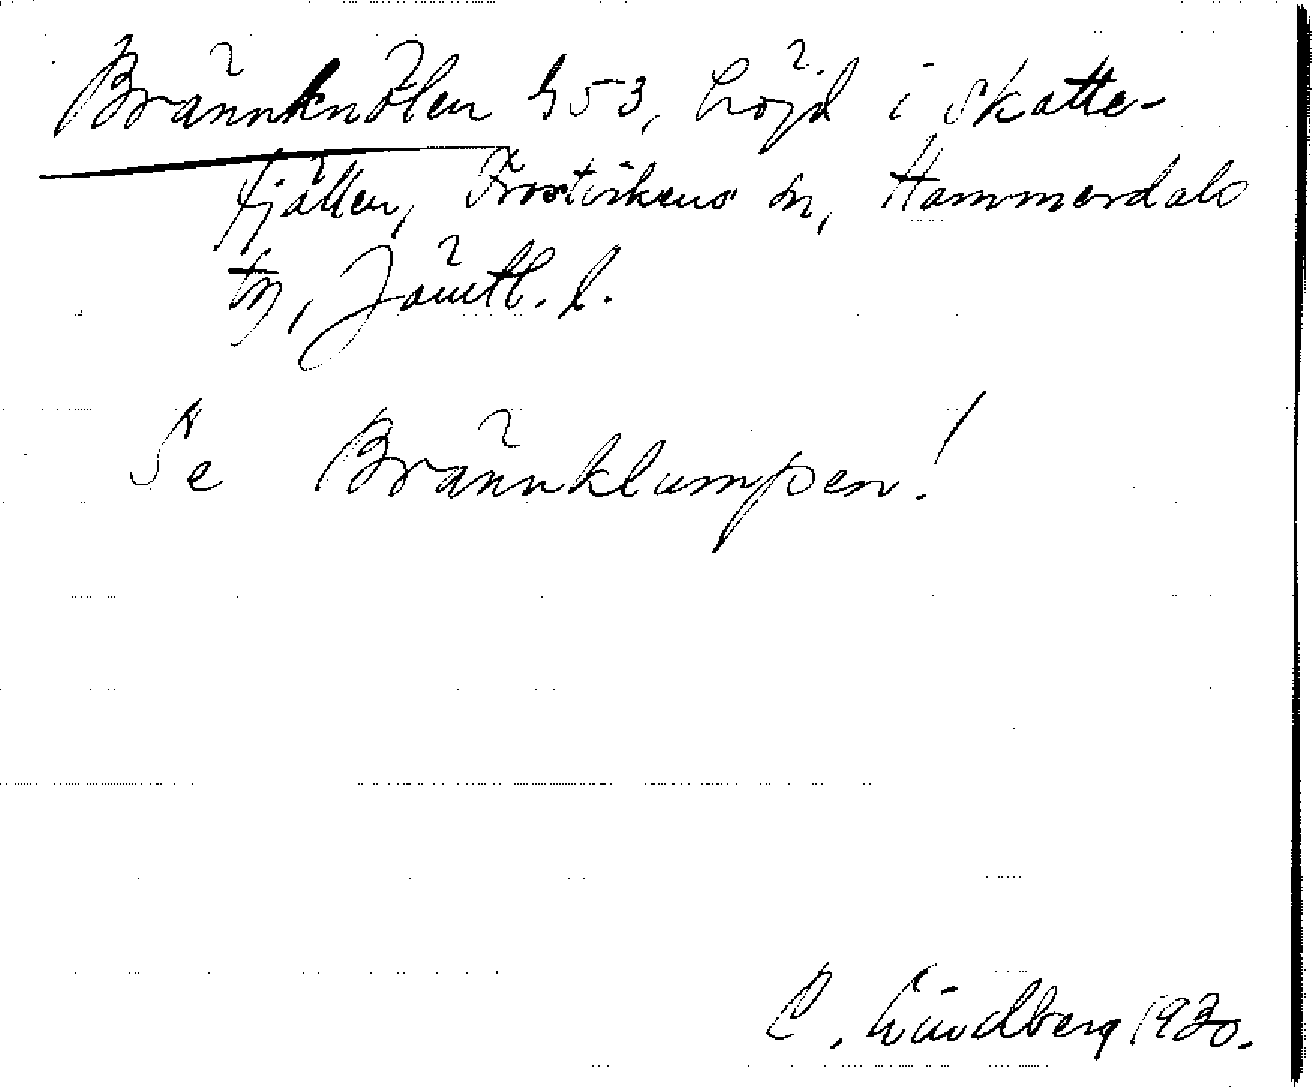 Brännknölen 953, höjd i Skatte-
fjällen, Frostvikens sn, Hammerdals
tg, Jämtl. l.
Se Brännklumpen!
C. Lindberg 1930.